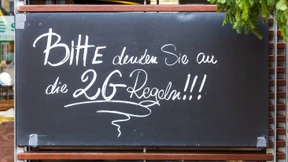 BITTE denden Sie an
die 2G-Regeln!!!